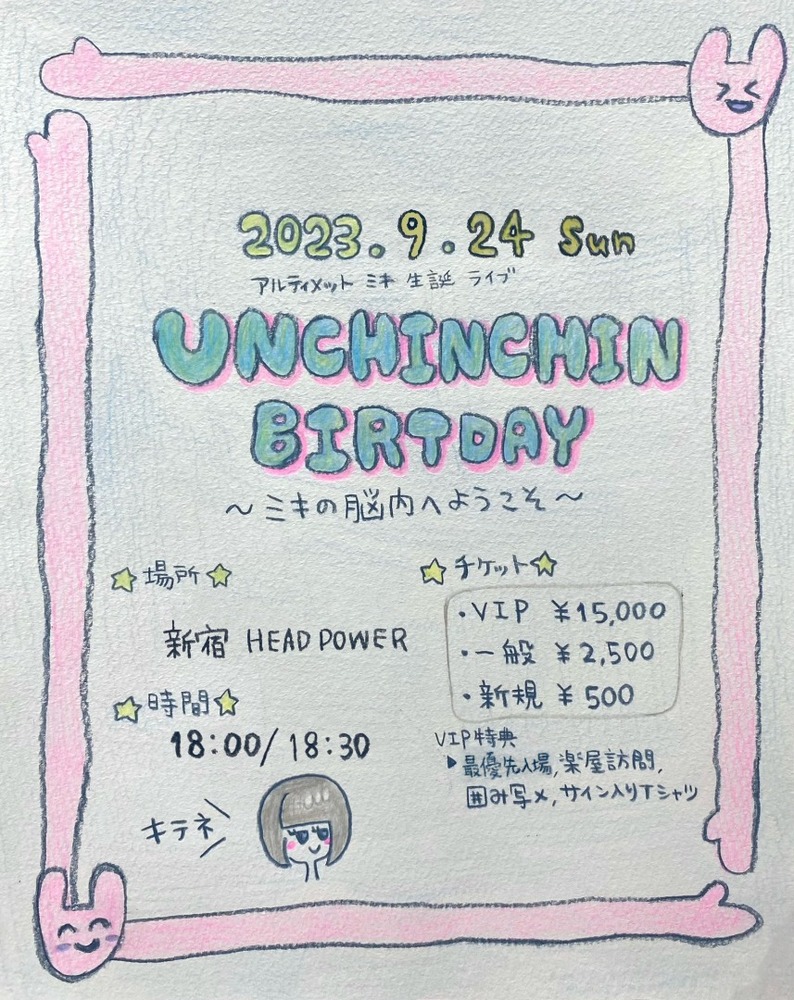 2023.9.24 Sun
アルティメット ミキ 生誕 ライブ
UNCHINCHIN
BIRTDAY
～ミキの脳内へようこそ～
場所
新宿 HEAD POWER
時間
18:00/18:30
キテネ
チケット
・VIP ¥15,000
・一般 ¥2,500
・新規 ¥500
VIP特典
▶最優先入場,楽屋訪問,
囲み写メ,サイン入りTシャツ